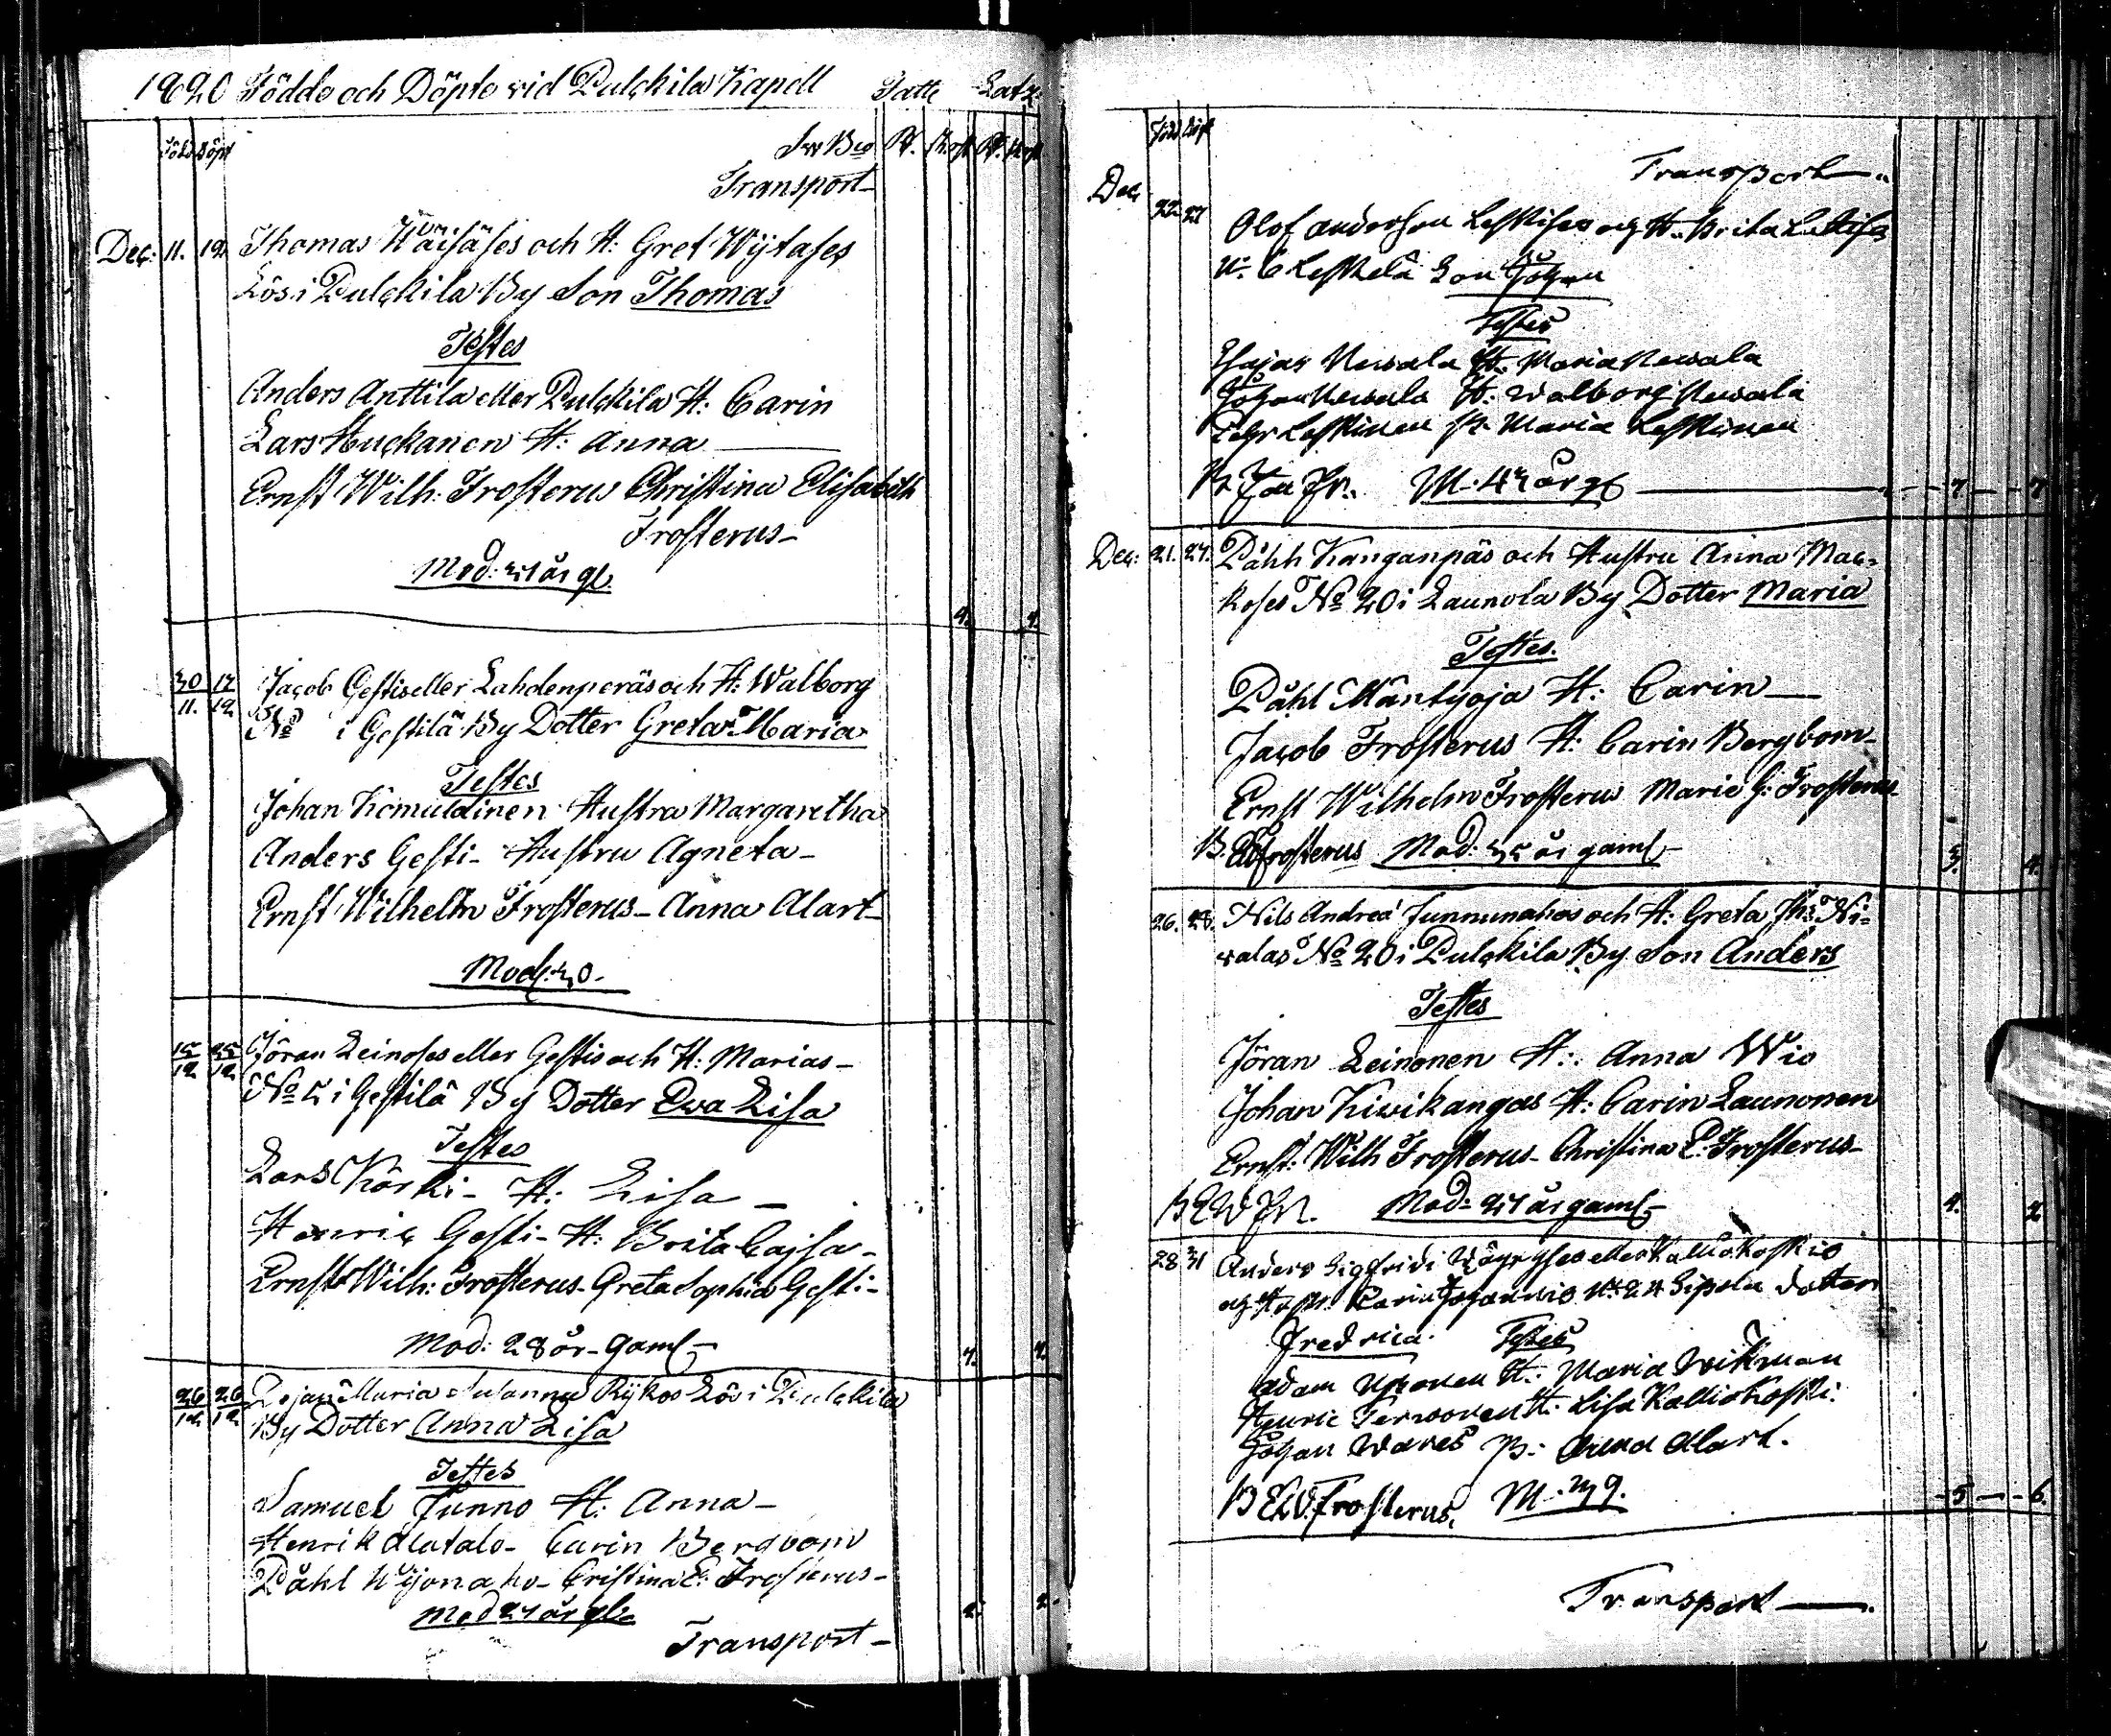 1820 Födde och Döpte vid Pulckila Kapell Fatte Satz.
Föds Döpt Sw Bco R. R. sk R. R. sk
Transport
Dec: 11. 12. Thomas Wäisäses och H: Gret Wijtases
Lös i Pulckila By Son Thomas
Testes
Anders Anttila eller Pulckila H: Carin
Lars Huckanen H: Anna
Ernst Wilh: Frosterus Christina Elisabeth
Frosterus
Mod: år gl.
4. 4.
30/11. 17/12 Jacob Gestis eller Lahdenperäs och H: Walborg
No i Gestilä By Dotter Greta Maria
Testes
Johan Komulainen Hustru Margaretha
Anders Gesti - Hustru Agneta -
Ernst Wilhelm Frosterus - Anna Alart
Mod: 30.
15/12 25/12 Jöran Leinoses eller Gestis och H: Marias -
No 5 i Gestilä By Dotter Eva Lisa
Testes
Lars Kärki - H: Lisa -
Henric Gesti - H: Brita Cajsa -
Ernst Wilh: Frosterus - Greta Sophia Gesti -
Mod: 28 år - gaml 4. 4.
26/12 26/12 Pigan Maria Susanna Rykos Lös i Pulckila
By Dotter Anna Lisa
Testes
Samuel Junno H: Anna -
Henrik Alatalo - Carin Bergbom
Påhl - Cristina E: Frosterus -
Mod 24 år gl. 2. 2.
Transport -
Föds Döpt
Transport
Dec 22 27 Olof Andersson Leskises och H. Brita
N: 6 Leskelä Son Johan
Testes
Esajas Newala H. Maria Newala
Johan Newala H: Walborg Newala
Pehr Leskinen P. Maria Leskinen
M. år gl 7 7
Dec: 21. 27. Påhl Kanganpäs och Hustru Anna Mac=
koses No 20 i Launola By Dotter Maria
Testes.
Påhl Mäntyoja H: Carin
Jacob Frosterus H: Carin Bergbom
Ernst Wilhelm Frosterus Maria G: Frosterus
B. EWFrosterus Mod: 35 år gaml 5. 4.
26. 28. Nils Andreæ Junnunahos och H: Greta Ni=
valas No 20 i Pulckila By Son Anders
Testes
Jöran Leinonen H: Anna Wio
Johan Kivikangas H: Carin Launonen
Ernst: Wilh Frosterus - Christina E: Frosterus
B EW Fr. Mod: 24 år gaml 4. 2
28 31 Anders Sigfridi eller Kalliokoskis
och Carin Johannis N: 24 Sipola dotter
Fredrica. Testes
Adam H: Maria Wikman
Henric Terwonen H: Lisa Kalliokoski.
Johan Wares P: Anna Alart.
B EW. Frosterus. M. 39. 5 6.
Transport